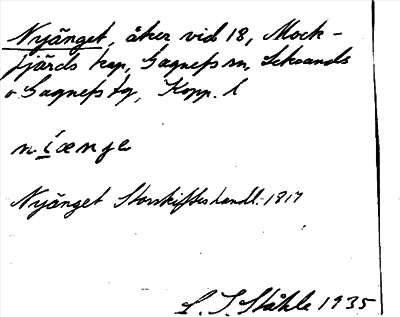 Nyänget, åker vid 18, Mock-
fjärds kap, Gagnefs sn, Leksands
o Gagnefs tg, Kopp. l
Nyänget Storskifteshandl. 1817
L. S. Ståhle 1935